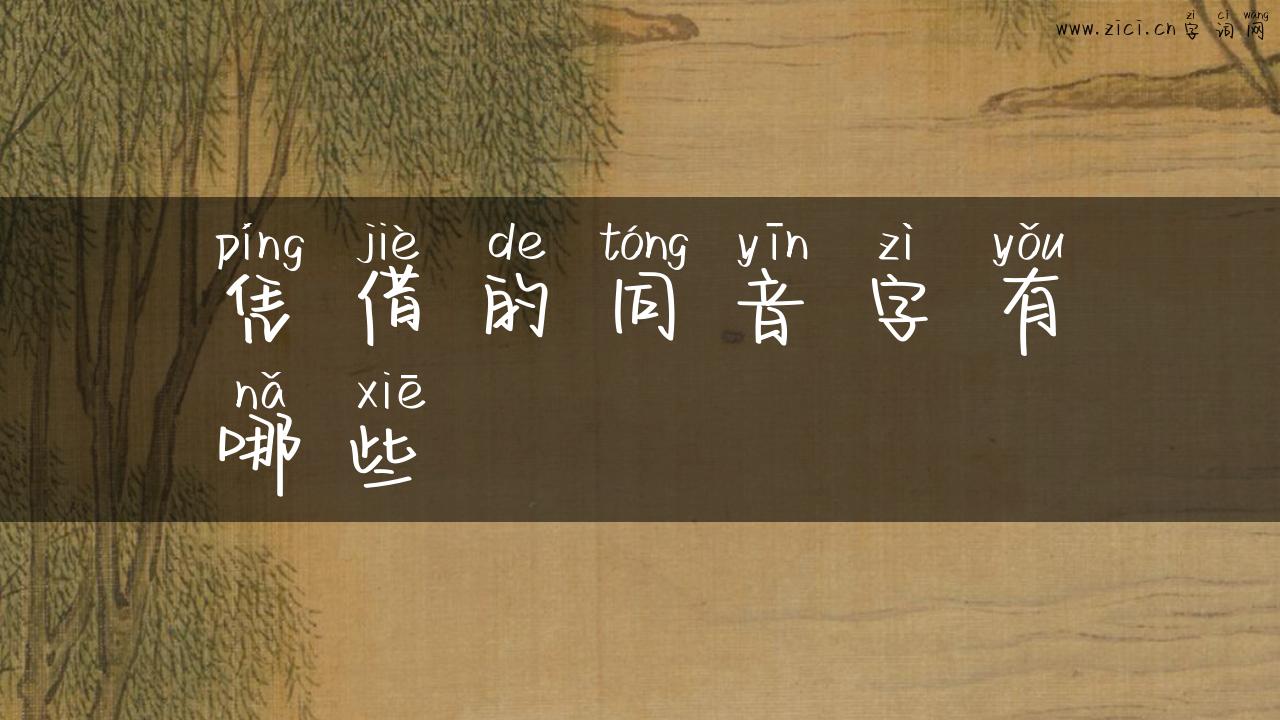 zì cí wǎng
www.zici.cn 字词网
píng jiè de tóng yīn zì yǒu
凭借的同音字有
nǎ xiē
哪些